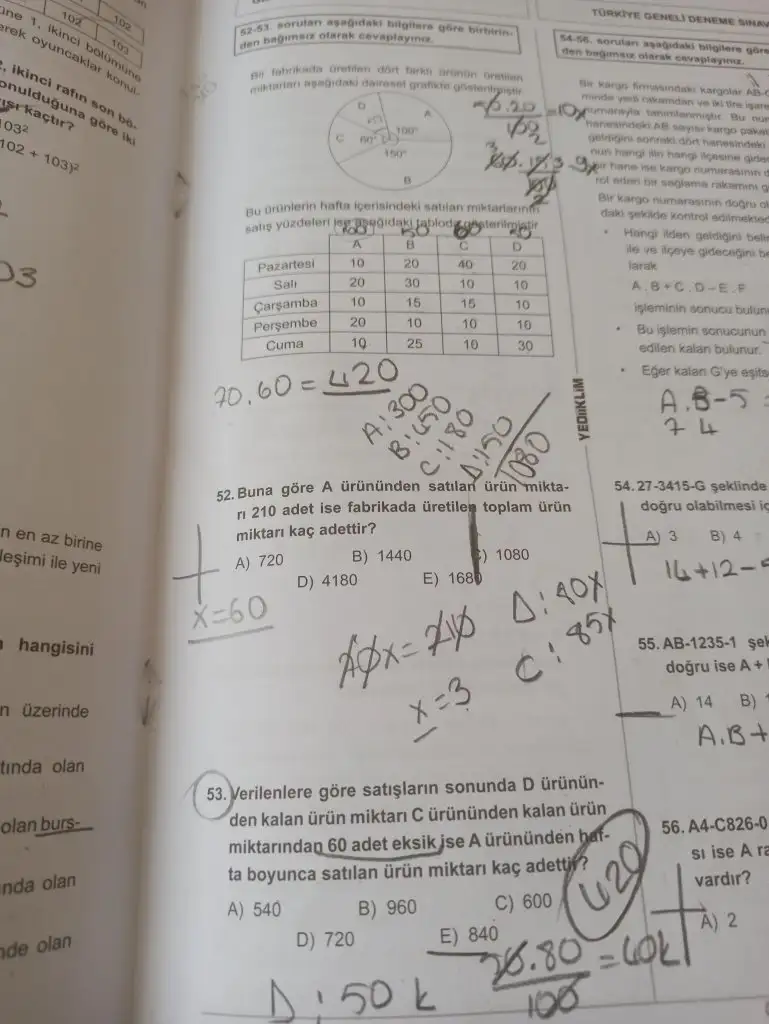 102
102
102
103
üne 1, ikinci bölümüne
erek oyuncaklar konul-
, ikinci rafın son bö-
onulduğuna göre iki
kaçtır?
103²
102 + 103)²
03
n en az birine
leşimi ile yeni
hangisini
n üzerinde
tında olan
olan burs-
nda olan
nde olan
52-53. soruları aşağıdaki bilgilere göre birbirin-
den bağımsız olarak cevaplayınız.
Bir fabrikada üretilen dört farklı ürünün üretilen
miktarları aşağıdaki dairesel grafikte gösterilmiştir.
D
A
C
60°
100°
150°
B
Bu ürünlerin hafta içerisindeki satılan miktarlarının
satış yüzdeleri ise aşağıdaki tabloda gösterilmiştir.
100 150 60 50
A B C D
Pazartesi 10 20 40 20
Salı 20 30 10 10
Çarşamba 10 15 15 10
Perşembe 20 10 10 10
Cuma 10 25 10 30
70.60 = 420
A: 300
B: 450
C: 180
D: 150
1080
52. Buna göre A ürününden satılan ürün mikta-
rı 210 adet ise fabrikada üretilen toplam ürün
miktarı kaç adettir?
A) 720 B) 1440 C) 1080
D) 4180 E) 1680
x=60
x=3
D: 90x
C: 85x
53. Verilenlere göre satışların sonunda D ürünün-
den kalan ürün miktarı C ürününden kalan ürün
miktarından 60 adet eksik ise A ürününden haf-
ta boyunca satılan ürün miktarı kaç adettir?
A) 540 B) 960 C) 600
D) 720 E) 840
420
D: 50 k
.80 = 40k
100
YEDİİKLİM
TÜRKİYE GENELİ DENEME SINAV
54-56. soruları aşağıdaki bilgilere göre
den bağımsız olarak cevaplayınız.
Bir kargo firmasındaki kargolar AB-C
minde yedi rakamdan ve iki tire işare
numarayla tanımlanmıştır. Bu num
hanesindeki AB sayısı kargo paket
geldiğini sonraki dört hanesindeki
nun hangi ilin hangi ilçesine gide
bir hane ise kargo numarasının d
rol eden bir sağlama rakamını g
Bir kargo numarasının doğru ol
daki şekilde kontrol edilmekted
• Hangi ilden geldiğini belir
ile ve ilçeye gideceğini be
larak
A.B+C.D-E.F
işleminin sonucu bulun
• Bu işlemin sonucunun
edilen kalan bulunur.
• Eğer kalan G'ye eşits
A.B-5
7 4
54. 27-3415-G şeklinde
doğru olabilmesi iç
A) 3 B) 4
14+12-5
55. AB-1235-1 şek
doğru ise A +
A) 14 B)
A.B+
56. A4-C826-0
sı ise A ra
vardır?
A) 2